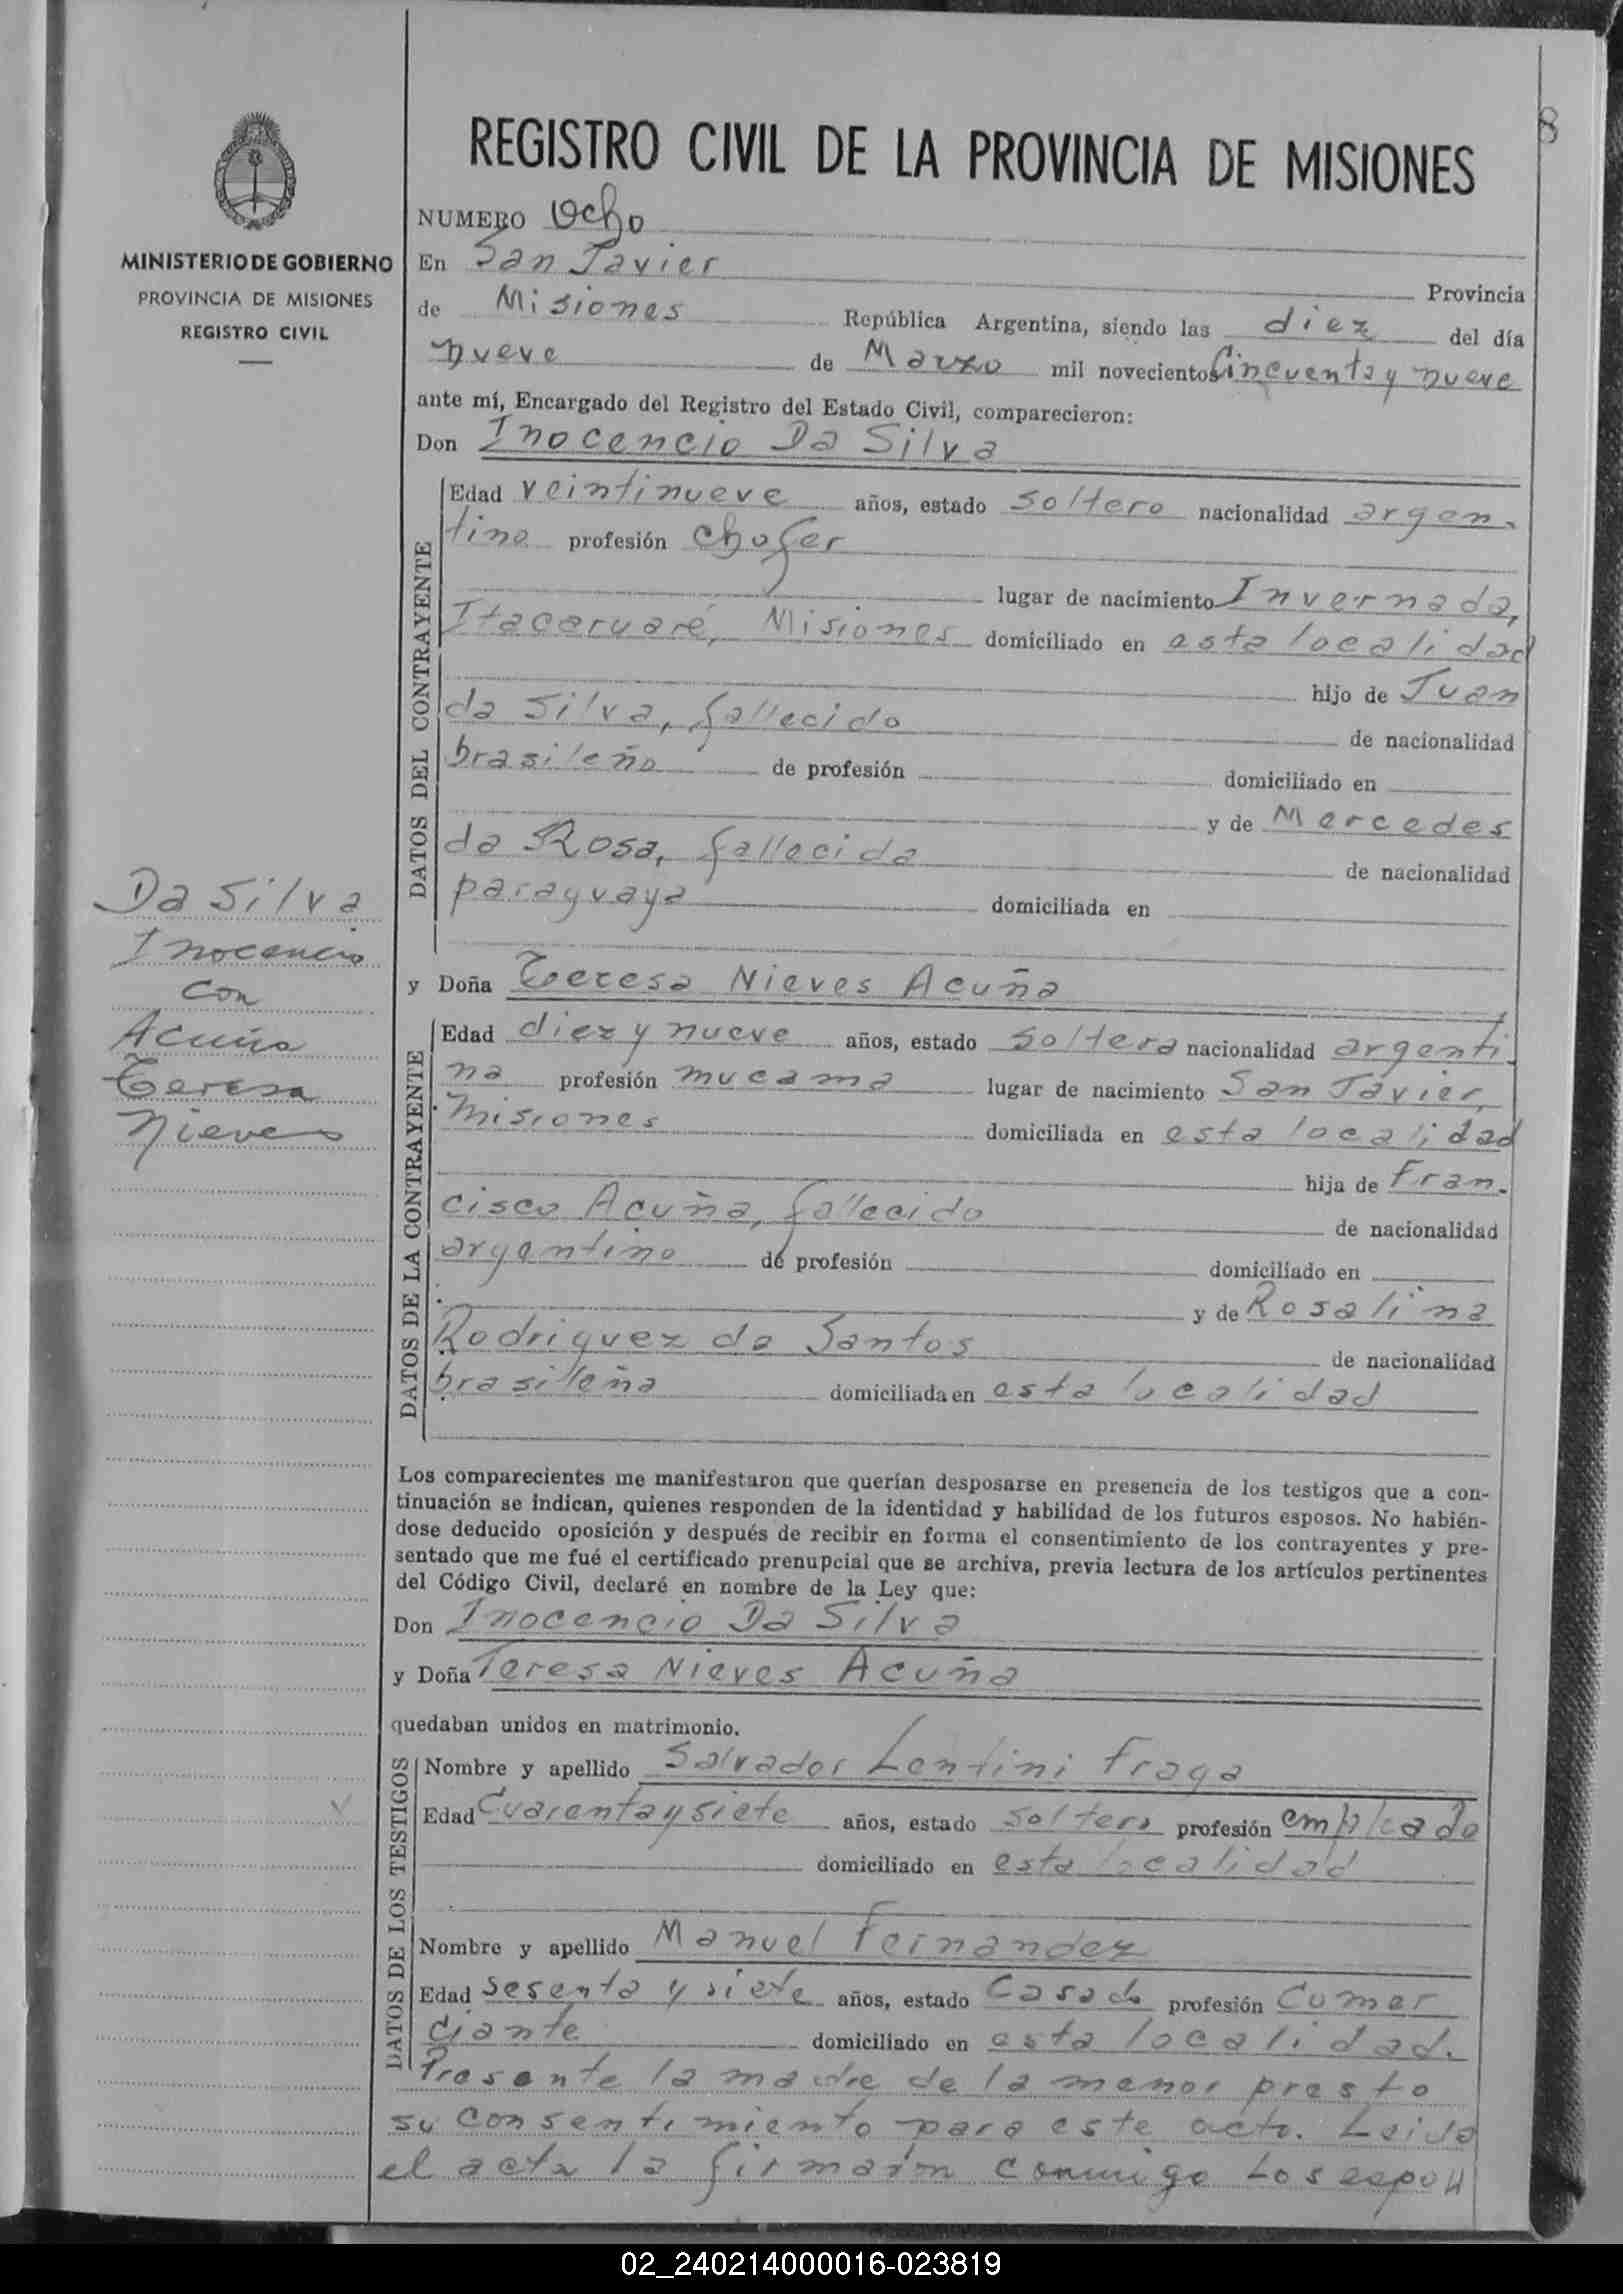 8
REGISTRO CIVIL DE LA PROVINCIA DE MISIONES
MINISTERIO DE GOBIERNO
PROVINCIA DE MISIONES
REGISTRO CIVIL
NUMERO Ocho
En San Javier Provincia
de Misiones República Argentina, siendo las diez del día
nueve de Marzo mil novecientos Cincuenta y nueve
ante mí, Encargado del Registro del Estado Civil, comparecieron:
Don Inocencio Da Silva
DATOS DEL CONTRAYENTE
Edad veintinueve años, estado soltero nacionalidad argen-
tino profesión chofer
lugar de nacimiento Invernada,
Itacaruaré, Misiones domiciliado en esta localidad
hijo de Juan
da Silva, fallecido de nacionalidad
brasileño de profesión domiciliado en
y de Mercedes
da Rosa, fallecida de nacionalidad
paraguaya domiciliada en
Da Silva
Inocencio
con
Acuña
Teresa
Nieves
y Doña Teresa Nieves Acuña
DATOS DE LA CONTRAYENTE
Edad diez y nueve años, estado soltera nacionalidad argenti-
na profesión mucama lugar de nacimiento San Javier,
Misiones domiciliada en esta localidad
hija de Fran-
cisco Acuña, fallecido de nacionalidad
argentino de profesión domiciliado en
y de Rosalina
Rodriguez da Santos de nacionalidad
brasileña domiciliada en esta localidad
Los comparecientes me manifestaron que querían desposarse en presencia de los testigos que a con-
tinuación se indican, quienes responden de la identidad y habilidad de los futuros esposos. No habién-
dose deducido oposición y después de recibir en forma el consentimiento de los contrayentes y pre-
sentado que me fué el certificado prenupcial que se archiva, previa lectura de los artículos pertinentes
del Código Civil, declaré en nombre de la Ley que:
Don Inocencio Da Silva
y Doña Teresa Nieves Acuña
quedaban unidos en matrimonio.
DATOS DE LOS TESTIGOS
Nombre y apellido Salvador Lentini Fraga
Edad Cuarenta y siete años, estado soltero profesión empleado
domiciliado en esta localidad
Nombre y apellido Manuel Fernandez
Edad Sesenta y siete años, estado Casado profesión Comer
ciante domiciliado en esta localidad.
Presente la madre de la menor presto
su consentimiento para este acto. Leida
el acta la firmarón conmigo los espou
02_240214000016-023819